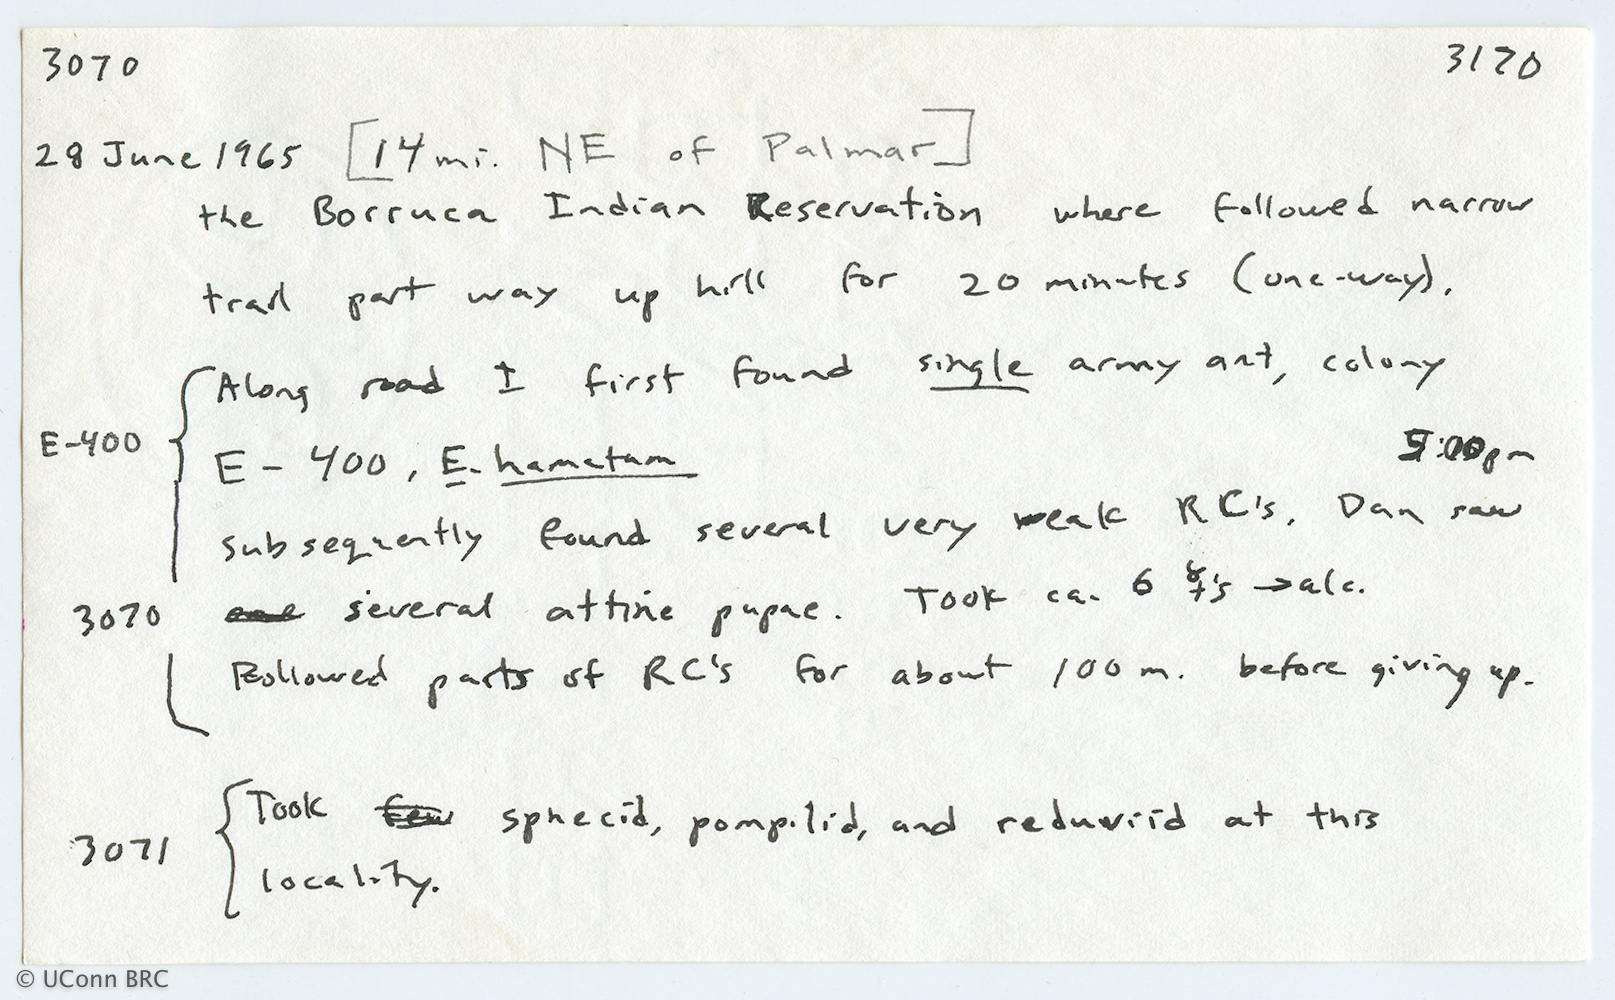 3070 3170
28 June 1965 [14 mi. NE of Palmar]
the Borruca Indian Reservation where followed narrow
trail part way up hill for 20 minutes (one-way).
Along road I first found single army ant, colony
E-400 E-400, E. hamatum 5:00 pm
subsequently found several very weak RC's. Dan saw
3070 several attine pupae. Took ca. 6 ☿'s → alc.
Followed parts of RC's for about 100 m. before giving up.
Took few sphecid, pompilid, and reduviid at this
3071 locality.
© UConn BRC